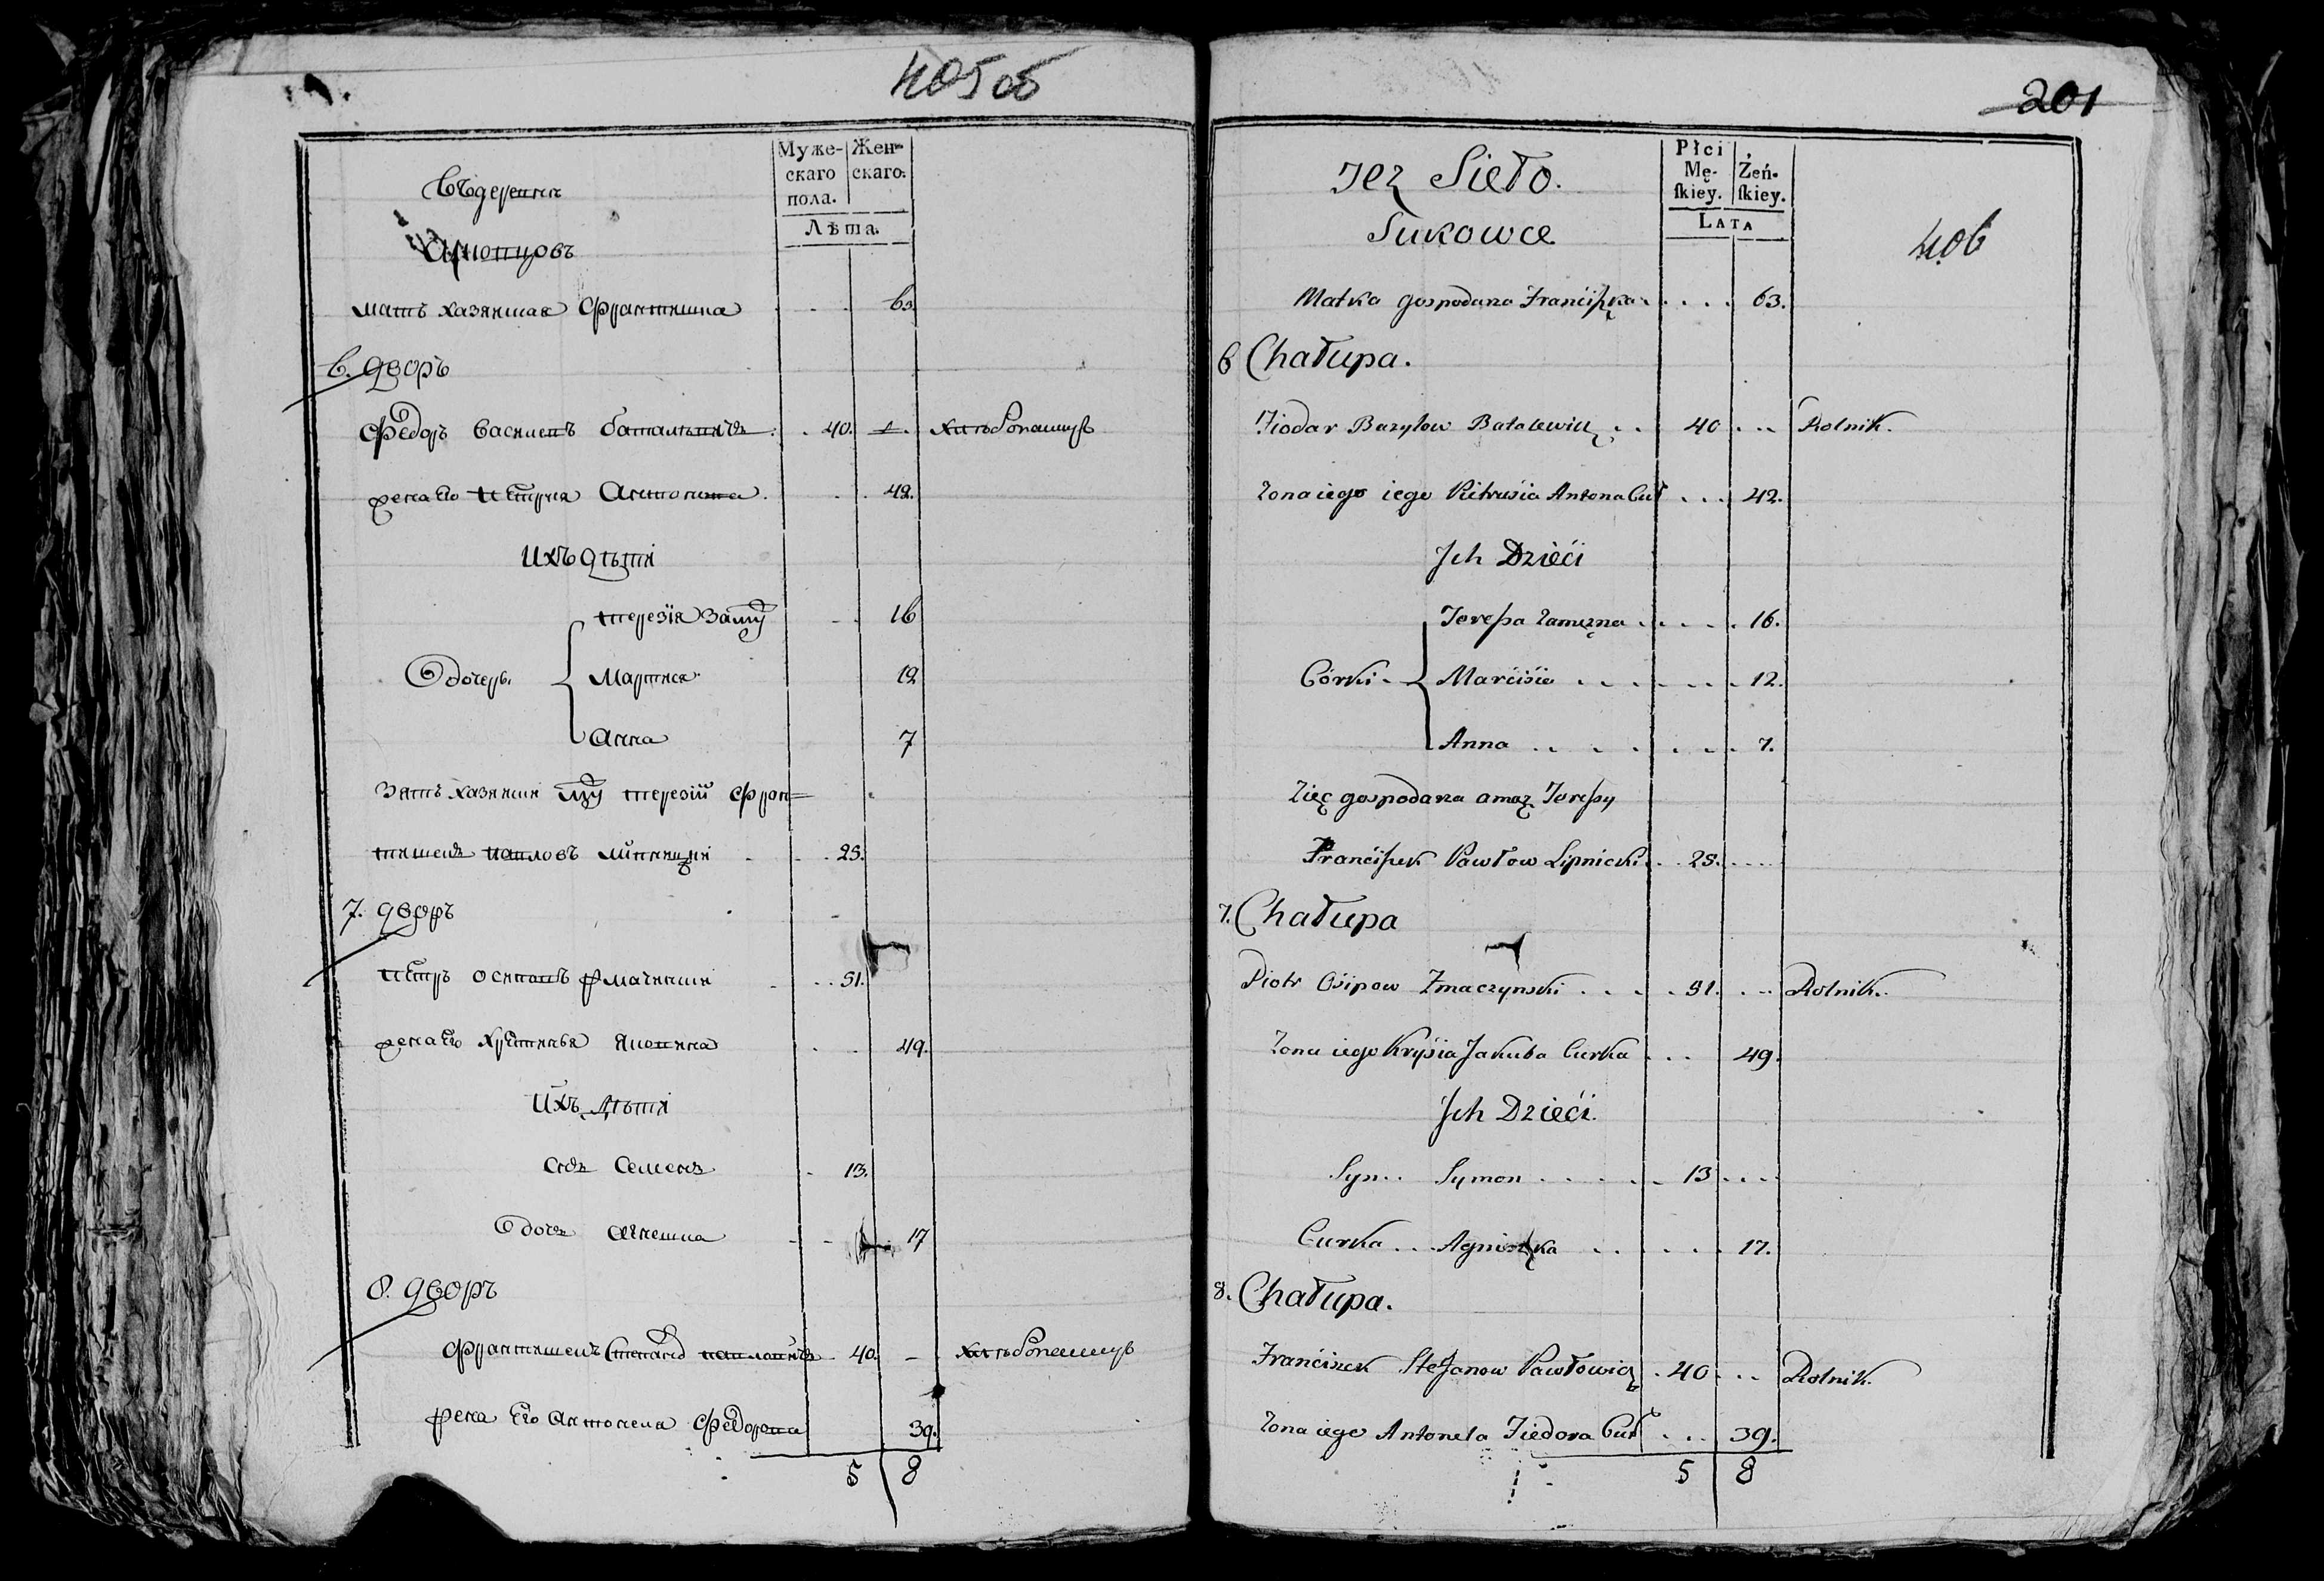 405 об
Муже-
скаго
пола.
Жен-
скаго.
Лѣта.
Въ деревни
мать хазяина Франтишка . . . 63.
6. дворъ
Федоръ Василевъ Баталевичъ . 40.
жена Его Петруся Антонова . . . 42.
Ихъ дѣти
Терезія Замуж . . 16
дочерѣ. Мартися 12
Анна 7
Зять хазяина муж Терезіи Фран=
тишекъ Павловъ Липницки . . . 25.
7. дворъ
Петръ Осиповъ Жмачински . . . 51.
жена Его Хрістинья Якова . . 49.
Ихъ Дѣти
Семенъ . 13.
дочь Агнешка . . 17
8. дворъ
Франтишекъ Степанов Павловичъ 40.
жена Его Антонела Федорова 39.
5 8
201
406
Płci
Mę-
ſkiey.
Żeń-
ſkiey.
LATA
Też Sieło.
Sukowce
Matka gospodarza Franciszka . . . . 63.
6 Chałupa.
Fiodor Bazylow Batalewicz . . 40 . . . Rolnik.
Zona iego iego Pietrusia Antona Cur . . . 42.
Jch Dzieći
Teressa Zamęzna . . . . . 16.
Córki. Marcisia . . . . . . 12.
Anna . . . . . . . 7.
Zięc gospodarza a mąz Teressy
Franciszek Pawłow Lipnicki . . 25. . . . .
7. Chałupa
Piotr Osipow Zmaczynski . . . . 51. . . . Rolnik.
Zona iego Krysia Jakuba Curka . . . 49.
Jch Dzieći.
Syn . . Symon . . . . . 13 . . . .
Curka . . . Agniszka . . . . . . 17.
8. Chałupa.
Franciszek Stefanow Pawłowicz . 40 . . . Rolnik.
Zona iego Antonela Fiedora Cur . . . 39.
5 8